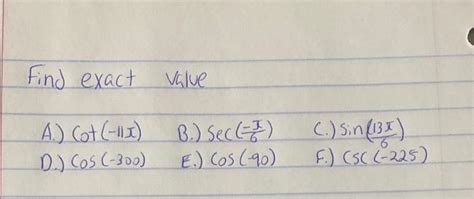 Find exact value
A.) Cot(-11π) B.) Sec(-π/6) C.) sin(13π/6)
D.) Cos(-300) E.) Cos(-90) F.) Csc(-225)